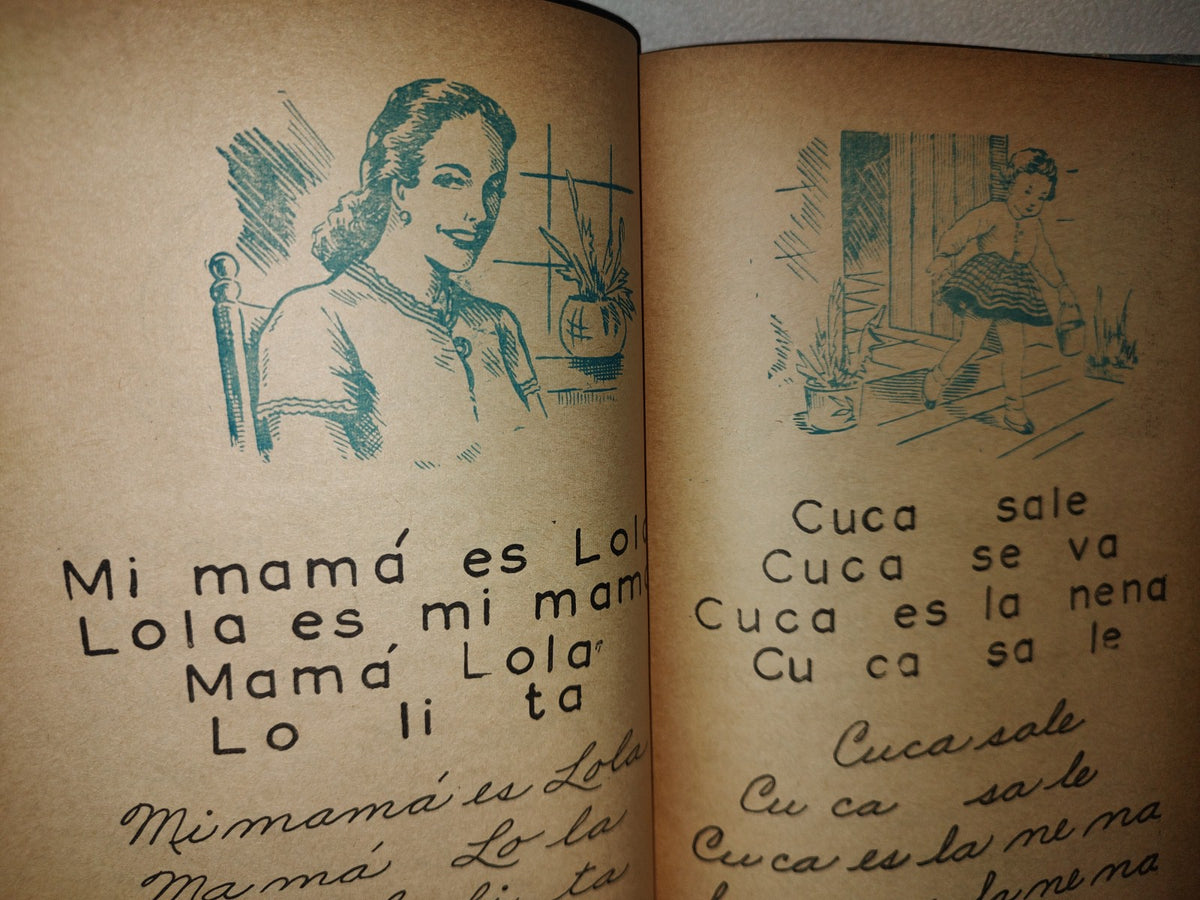 Mi mamá es Lola
Lola es mi mamá
Mamá Lola
Lo li ta
Mi mamá es Lola
Mamá Lo la
li ta
Cuca sale
Cuca se va
Cuca es la nena
Cu ca sa le
Cuca sale
Cu ca sa le
Cuca es la ne na
la ne na